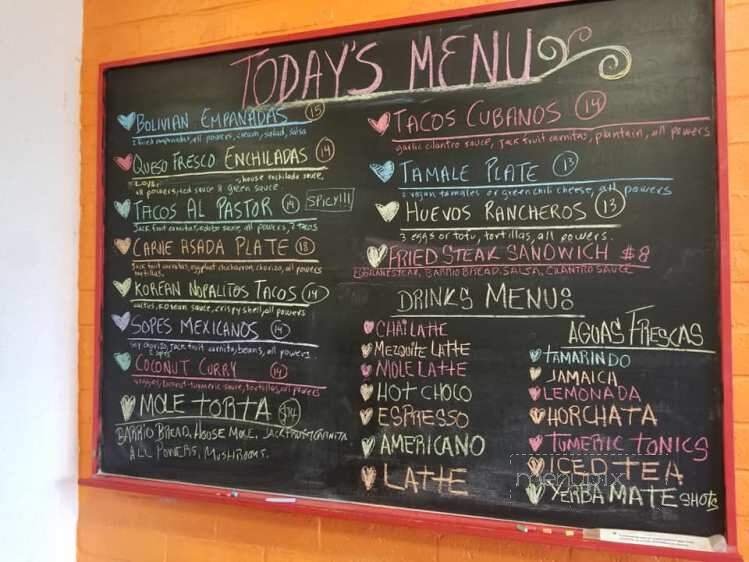 TODAY'S MENU
BOLIVIAN EMPANADAS 15
2 fried empanadas, all powers, cream, salad, salsa
QUESO FRESCO ENCHILADAS 14
house enchilada sauce,
all powers, red sauce & green sauce
TACOS AL PASTOR 14 SPICY!!!
Jack fruit carnitas, adobo sauce, all powers, 2 tacos
CARNE ASADA PLATE 18
Jack fruit carnitas, eggplant chicharron, chorizo, all powers
tortillas.
KOREAN NOPALITOS TACOS 14
cactus, korean sauce, crispy shell, all powers
SOPES MEXICANOS 14
soy chorizo, jack fruit carnita, beans, all powers
2 sopes
COCONUT CURRY 14
veggies, coconut-turmeric sauce, tortillas, all powers
MOLE TORTA $14
BARRIO BREAD, HOUSE MOLE, JACKFRUIT CARNITA
ALL POWERS, MUSHROOMS.
TACOS CUBANOS 14
garlic cilantro sauce, Jack fruit carnitas, plantain, all powers
TAMALE PLATE 13
2 vegan tamales or green chili cheese, all powers
HUEVOS RANCHEROS 13
3 eggs or tofu, tortillas, all powers.
FRIED STEAK SANDWICH $8
EGGPLANT STEAK, BARRIO BREAD, SALSA, CILANTRO SAUCE
DRINKS MENUS
CHAI LATTE
MEZQUITE LATTE
MOLE LATTE
HOT CHOCO
ESPRESSO
AMERICANO
LATTE
AGUAS FRESCAS
TAMARINDO
JAMAICA
LEMONADA
HORCHATA
TUMERIC TONICS
ICED TEA
YERBA MATE SHOTS
menupix